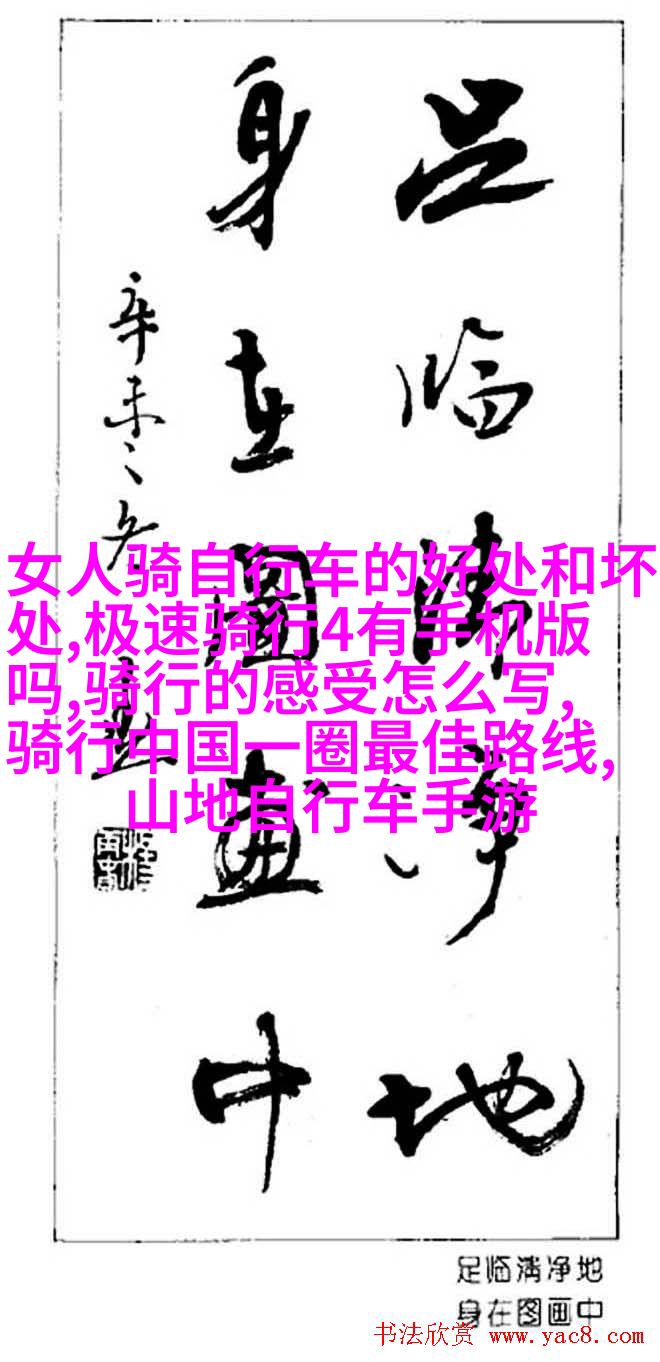 足临清净地
身在图画中
辛未之冬
女人骑自行车的好处和坏
处,极速骑行4有手机版
吗,骑行的感受怎么写,
骑行中国一圈最佳路线,
山地自行车手游
足临清净地
身在图画中
书法欣赏 www.yac8.com